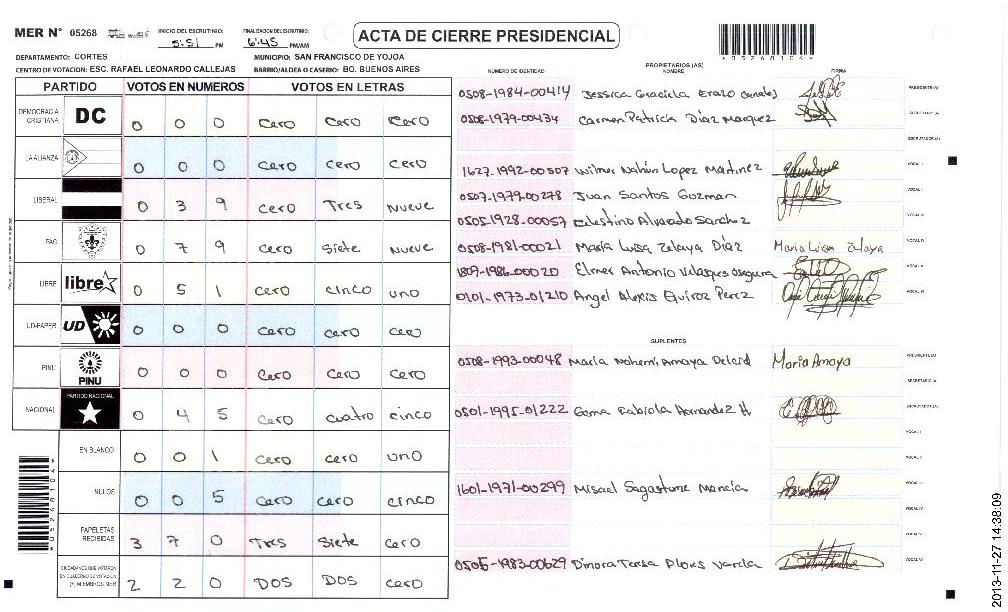 MER Nº 05268 INICIO DEL ESCRUTINIO: 5:51 PM FINALIZACION DEL ESCRUTINIO: 6:45 PM/AM
ACTA DE CIERRE PRESIDENCIAL
DEPARTAMENTO: CORTES MUNICIPIO: SAN FRANCISCO DE YOJOA
CENTRO DE VOTACION: ESC. RAFAEL LEONARDO CALLEJAS BARRIO/ALDEA O CASERIO: BO. BUENOS AIRES
PARTIDO VOTOS EN NUMEROS VOTOS EN LETRAS
DEMOCRACIA CRISTIANA DC 0 0 0 Cero Cero Cero
LA ALIANZA 0 0 0 Cero Cero Cero
LIBERAL 0 3 9 Cero Tres Nueve
PAC 0 7 9 Cero Siete Nueve
LIBRE libre 0 5 1 Cero Cinco uno
UD-FAPER UD 0 0 0 Cero Cero Cero
PINU PINU 0 0 0 Cero Cero Cero
NACIONAL PARTIDO NACIONAL 0 4 5 Cero Cuatro Cinco
EN BLANCO 0 0 1 Cero Cero uno
NULOS 0 0 5 Cero Cero Cinco
PAPELETAS RECIBIDAS 3 7 0 Tres Siete Cero
CIUDADANOS QUE VOTARON EN CUADERNO DE VOTACION (+) MIEMBROS MER 2 2 0 DOS DOS Cero
PROPIETARIOS (AS)
NUMERO DE IDENTIDAD NOMBRE FIRMA
0508-1984-00414 Jessica Graciela Erazo PRESIDENTE(A)
0508-1979-00434 Carmen Patricia Díaz Marquez SECRETARIO (A)
ESCRUTADOR (A)
1627-1992-00507 Wilmer Nahún Lopez Martinez VOCAL I
0507-1979-00278 Juan Santos Guzman
0505-1928-00057 Celestino Alvarado Sanchez
0508-1981-00021 María Luisa Zelaya Díaz Maria Luisa Zelaya
1809-1986-00020 Elmer Antonio Velasques
0101-1973-01210 Angel Alexis Quiroz Perez
SUPLENTES
0508-1993-00048 María Nohemi Amaya Maria Amaya PRESIDENTE(A)
SECRETARIO (A)
0501-1995-01222 Fabiola Hernandez H ESCRUTADOR (A)
1601-1971-00299 Misael Sagastume Mancía
0505-1983-00629 Dinora Flores
05268104
2013-11-27 14:38:09